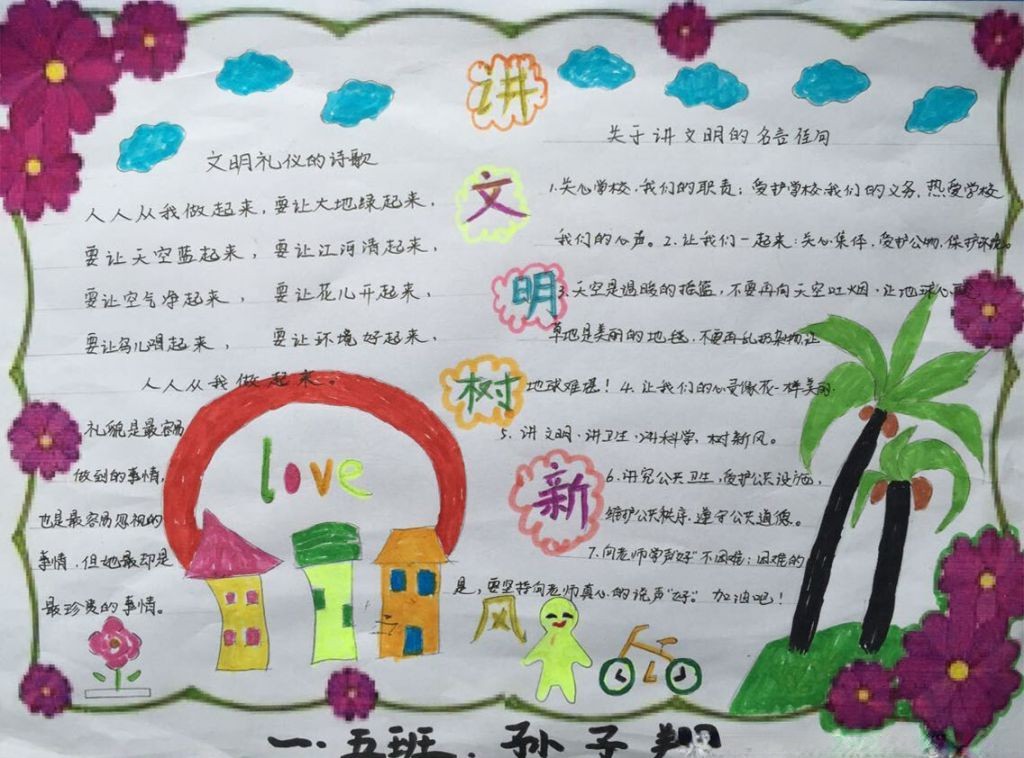 讲
文
明
树
新
风
文明礼仪的诗歌
人人从我做起来,要让大地绿起来,
要让天空蓝起来, 要让江河清起来,
要让空气净起来, 要让花儿开起来,
要让鸟儿唱起来, 要让环境好起来,
人人从我做起来。
礼貌是最容易
做到的事情,
也是最容易忽视的
事情,但她最却是
最珍贵的事情。
love
关于讲文明的名言佳句
1.关心学校,我们的职责;爱护学校我们的义务,热爱学校
我们的心声。2.让我们一起来:关心集体,爱护公物,保护环境。
3.天空是温暖的摇篮,不要再向天空吐烟,让地球心
草地是美丽的地毯,不要再乱扔杂物,让
地球难堪!4.让我们的心灵像花一样美丽.
5.讲文明,讲卫生,讲科学,树新风。
6.讲究公共卫生,爱护公共设施,
维护公共秩序,遵守公共道德。
7.向老师学声"好"不困难;困难的
是,要坚持向老师真心的说声"好"。加油吧!
一.五班.孙子翔